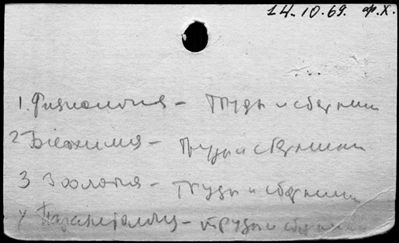 14.10.69. ф.х.
1. Физиология – Труды и сборники
2 Биохимия – Труды и сборники
3 Зоология – Труды и сборники
4 Паразитология – Труды и сборники